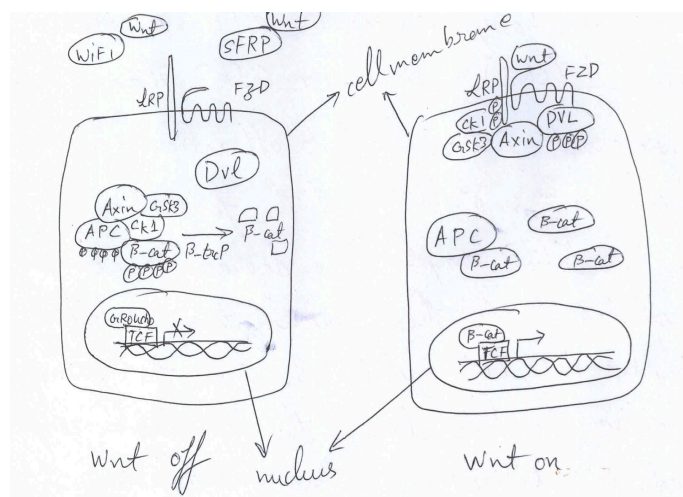 Wnt
WiFi
Wnt
SFRP
cell membrane
LRP
FZD
Dvl
Axin
GSK3
APC
CK1
β-cat
P P P P
P P P P
β-TrcP
β-cat
GROUCHO
TCF
X
Wnt off
nucleus
Wnt
LRP
FZD
P
CK1
P
DVL
GSK3
Axin
P P P
APC
β-cat
β-cat
β-cat
β-cat
TCF
Wnt on